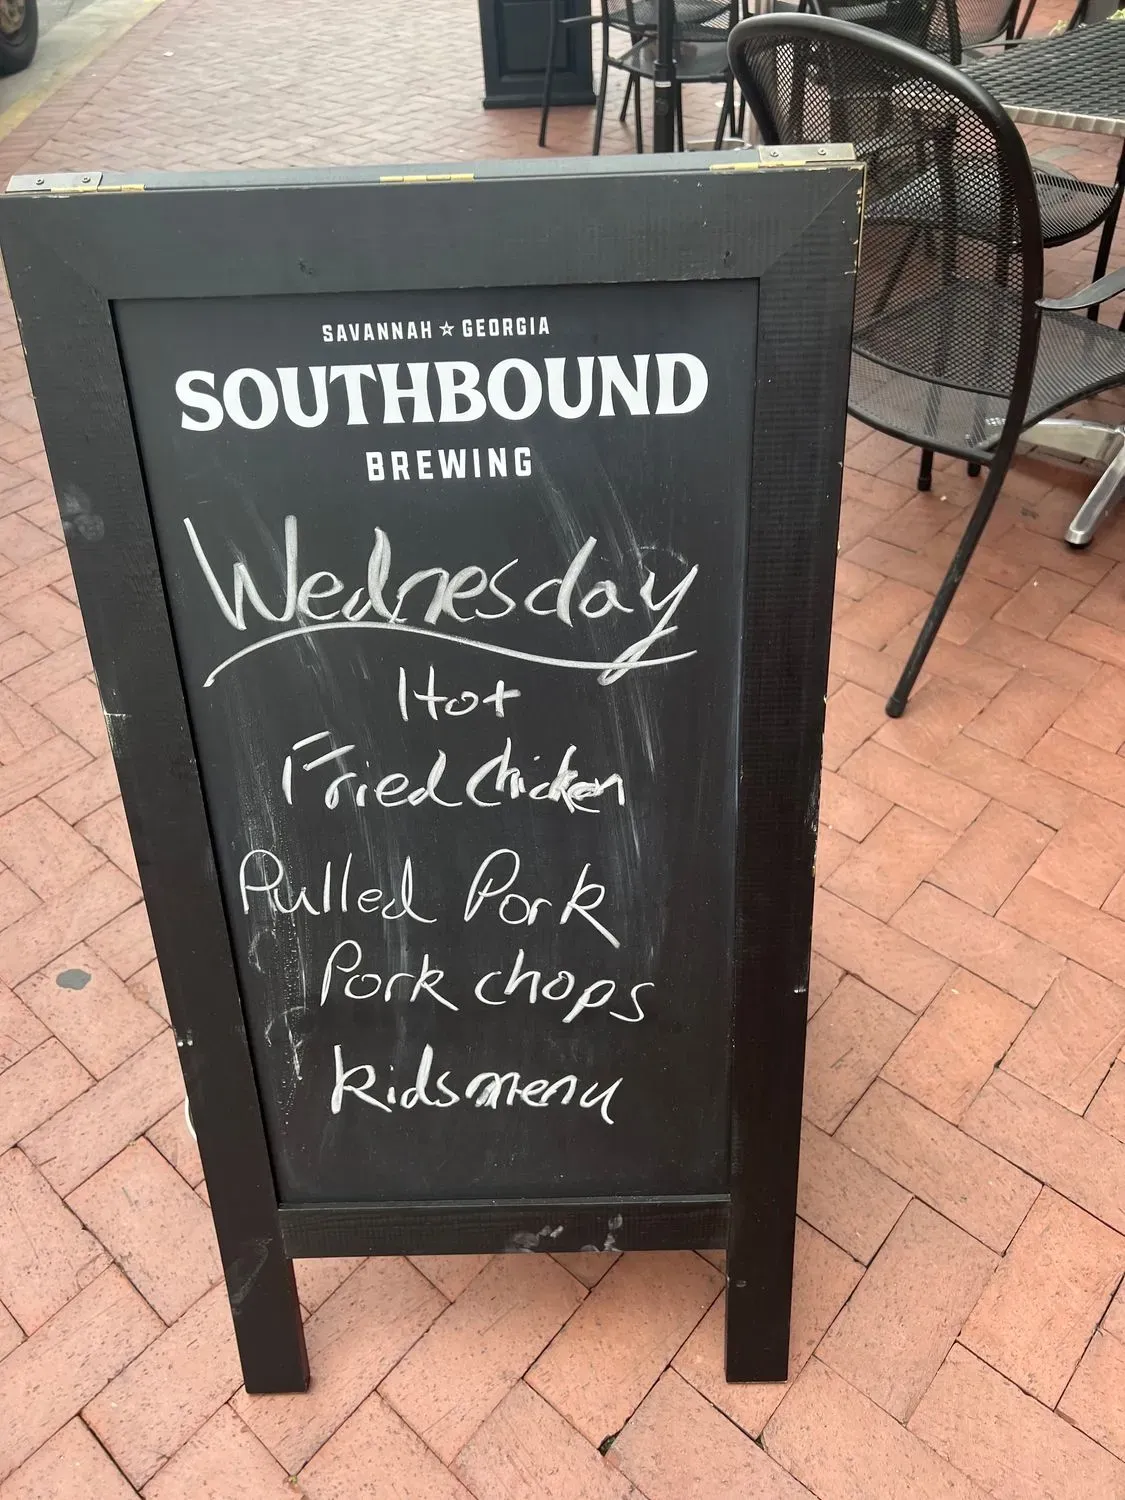 SAVANNAH ☆ GEORGIA
SOUTHBOUND
BREWING
Wednesday
Hot
Fried chicken
Pulled Pork
Pork chops
kids menu